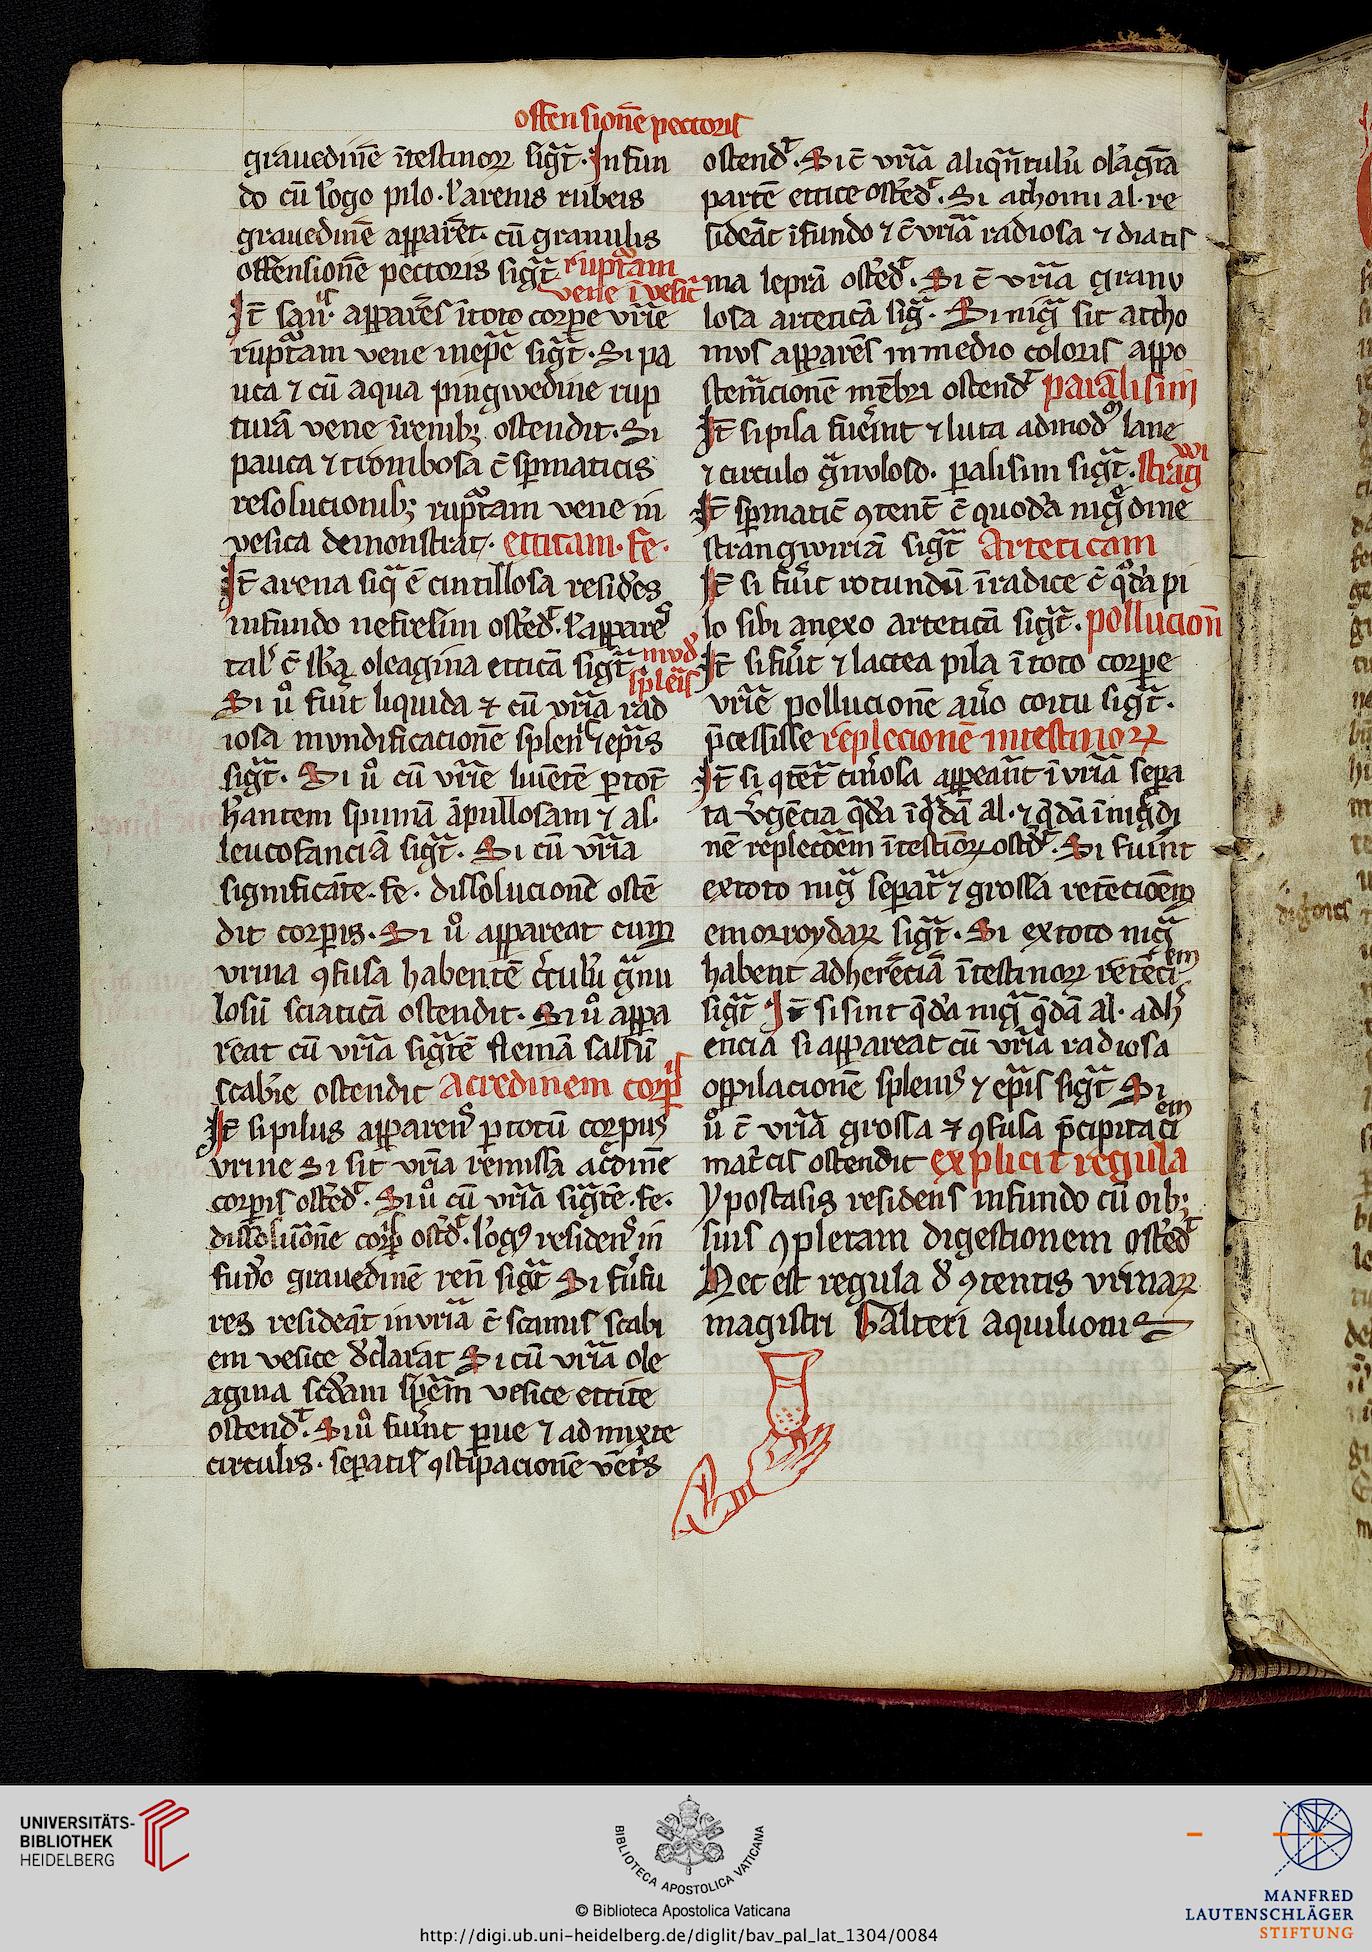 offensionē pectoris
grauedinē ītestinoꝝ sigͣt. In fun
do cū lōgo pilo. ł arenis rubeis
grauedinē apparēt. cū granulis
offensionē pectoris sigͣt rupͭram
vene ī vesic̄
It̄ apparēs ī toto corpe vrīe
rupͭram vene sigͣt. Si pa
uca ⁊ cū aqua pingwedine rup
turā vene ī renibꝫ ostendit. Si
pauca ⁊ trombosa c̄ spermaticis
resolucionibꝫ rupͭram vene in
vesica demonstrat. etticam. fe.
It̄ arena siqͣ ē cintillosa residēs
in fundo nefresim ostēdͭ. ł apparēs
oleagina etticā sigͣt mūd
splenis
Si u̇ fuīt liquida ⁊ cū vrīa rad
iosa mundificacionē splenis ⁊ epīs
sigͣt. Si u̇ cū vrīe liuētē ꝑ tot̄
hantem spumā āpullosam ⁊ al.
leucofanciā sigͣt. Si cū vrīa
significāte. fe. dissolucionē ostē
dit corpis. Si u̇ appareat cum
vrina ꝯfusa habentē cīculū gͣnu
losū sciaticā ostendit. Si u̇ appa
reat cū vrīa sigͣtē flemā salsū
scabīe ostendit Acredinem corpis
It̄ si pilus apparens ꝑ totū corpus
vrine Si sit vrīa remissa acͥdinē
corpis ostēdͭ. Si u̇ cū vrīa sigͣtē. fe.
dissoluc̄onē corp̄ ostd̄ͭ. lōgꝯ residens in
fundo grauedinē ren̄ sigͣt Si furfu
res resideāt in vrīa c̄ scamis scabi
em vesice dclarāt Si cū vrīa ole
agina scdam spēm vesice ettice
ostendͭ. Si u̇ fuīnt ꝑue ⁊ admixte
circulis. sepatis ꝯstipacionē vētris
ostendͭ. Si c̄ vrīa aliqͣntulū olagīa
partē ettice ostēdͭ. Si athomi al. re
sideāt ī fundo ⁊ c̄ vrīa radiosa ⁊ diatis
ma leprā ostēdͭ. Si c̄ vrīa granu
losa arteticā sigͣ. Si nigͣ sit attho
mus apparēs in medio coloris appo
stemͣcionē mēbri ostendͭ paralisim
It̄ si pila fuerint ⁊ luta admodͫ lane
⁊ circulo gͣnuloso. palisim sigͣt. strāgwi
It̄ spermatic̄ ꝯtent̄ c̄ quodā nigͤdine
strangwiriā sigͣt Arteticam
It̄ si fuīt rotundū ī radice c̄ qͦdā pi
lo sibi anexo arteticā sigͣt. pollucion̄
It̄ si fuīt ⁊ lactea pila ī toto corpe
vrīe pollucionē aūo coitu sigͣt.
p̄cessisse replecionē intestinoꝝ
It̄ si ꝯtēta cinosa appeaūt ī vrīa sepa
ta qͣdā ī qͥdā al. ⁊ qͣdā ī nigͥdi
nē replecōem ītestīoꝝ ostd̄ͭ. Si fuīnt
ex toto nigͣ sepatͣ ⁊ grossa retēcōem
emorroydaꝝ sigͣt. Si ex toto nigͣ
habent adherēciā ītestinoꝝ retēcōem
sigͣt It̄ si sint qͣdā nigͣ qͣdā al. adh
encia si appareat cū vrīa radiosa
oppilacionē splenis ⁊ epīs sigͣt Si
u̇ c̄ vrīa grossa ⁊ ꝯfusa p̄cipitacōem
matͥcis ostendit explicit regula
ypostasis residens in fundo cū oībꝫ
suis ꝯpletam digestionem ostēdͭ
Hec est regula d̄ ꝯtentis vrinaꝝ
magistri Galteri Aquilionis
UNIVERSITÄTS-
BIBLIOTHEK
HEIDELBERG
BIBLIOTECA APOSTOLICA VATICANA
© Biblioteca Apostolica Vaticana
http://digi.ub.uni-heidelberg.de/diglit/bav_pal_lat_1304/0084
MANFRED
LAUTENSCHLÄGER
STIFTUNG